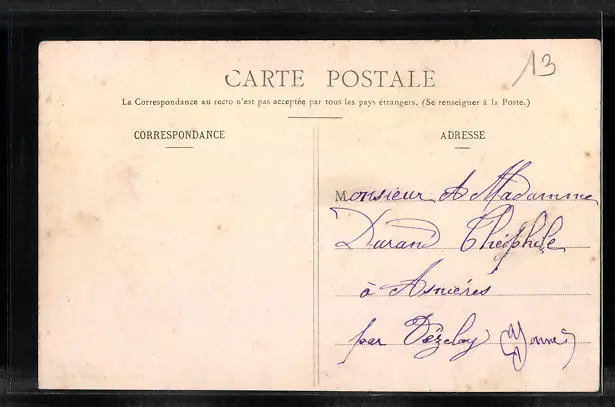 13
CARTE POSTALE
La Correspondance au recto n'est pas acceptée par tous les pays étrangers. (Se renseigner à la Poste.)
CORRESPONDANCE
ADRESSE
Monsieur & Madamme
Durand Théophile
à Asnières
par Vézelay (Yonne)